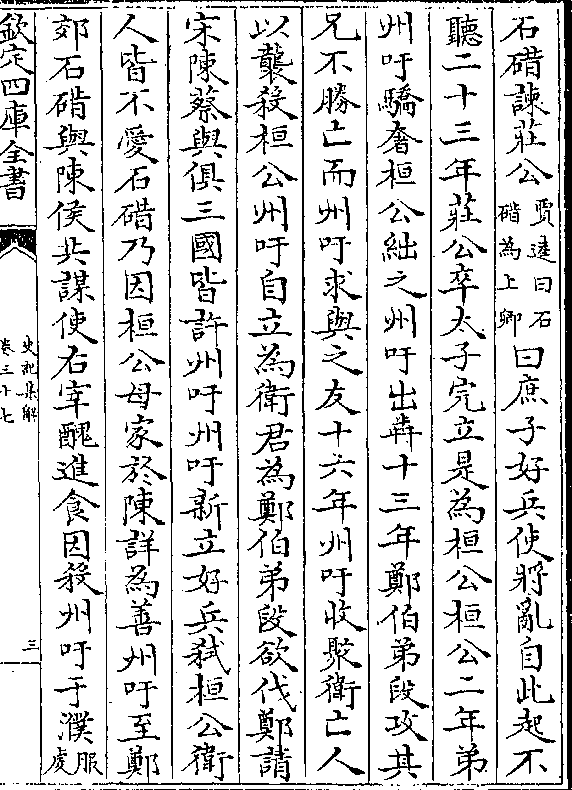 石碏諫莊公賈逵曰石碏為上卿曰庶子好兵使將亂自此起不
聽二十三年莊公卒太子完立是為桓公桓公二年弟
州吁驕奢桓公絀之州吁出犇十三年鄭伯弟段攻其
兄不勝亡而州吁求與之友十六年州吁收聚衛亡人
以襲殺桓公州吁自立為衛君為鄭伯弟段欲伐鄭請
宋陳蔡與俱三國皆許州吁州吁新立好兵弑桓公衛
人皆不愛石碏乃因桓公母家於陳詳為善州吁至鄭
郊石碏與陳侯共謀使右宰醜進食因殺州吁于濮服虔
欽定四庫全書
史記集解
卷三十七
三